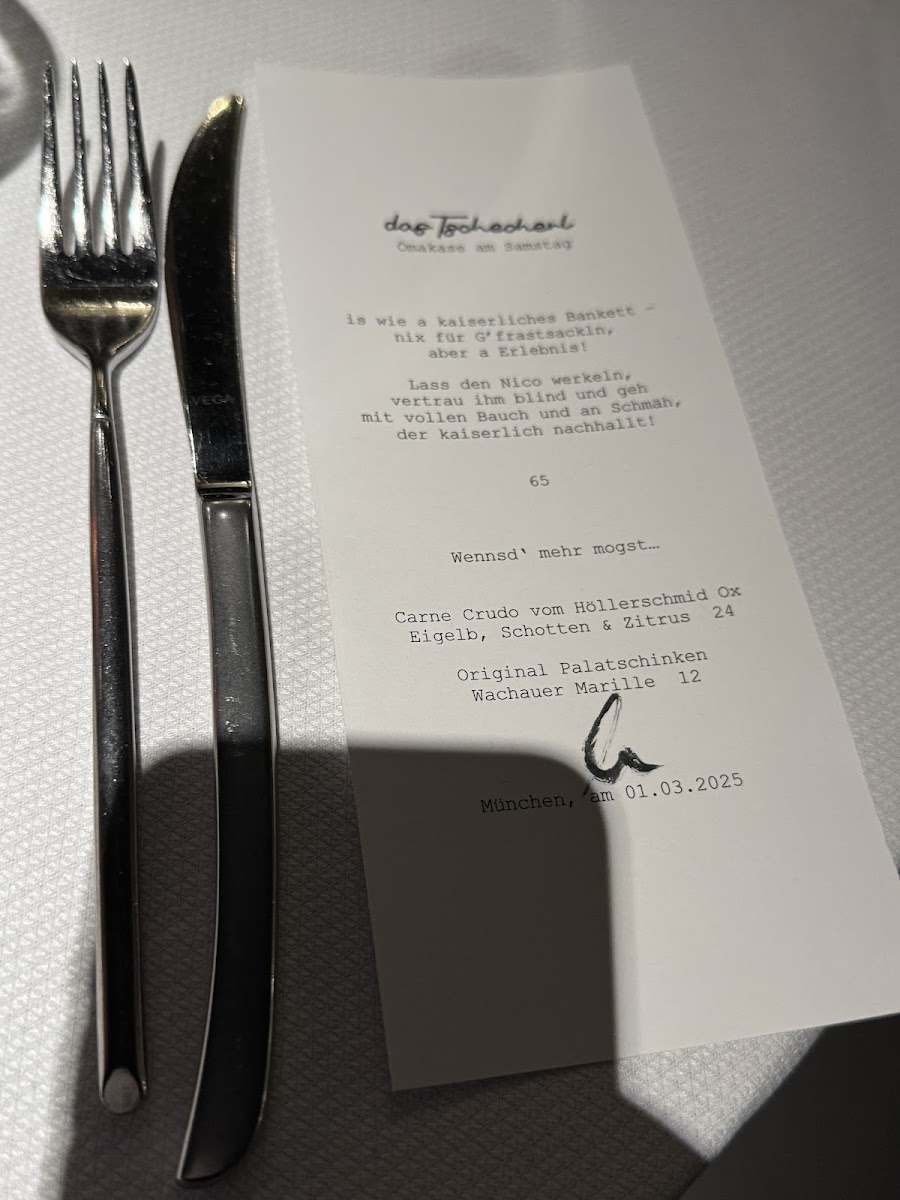 das Tschecherl
Omakase am Samstag
is wie a kaiserliches Bankett -
nix für G'frastsackln,
aber a Erlebnis!
Lass den Nico werkeln,
vertrau ihm blind und geh
mit vollen Bauch und an Schmäh,
der kaiserlich nachhallt!
65
Wennsd` mehr mogst…
Carne Crudo vom Höllerschmid Ox
Eigelb, Schotten & Zitrus 24
Original Palatschinken
Wachauer Marille 12
München, am 01.03.2025
VEGA